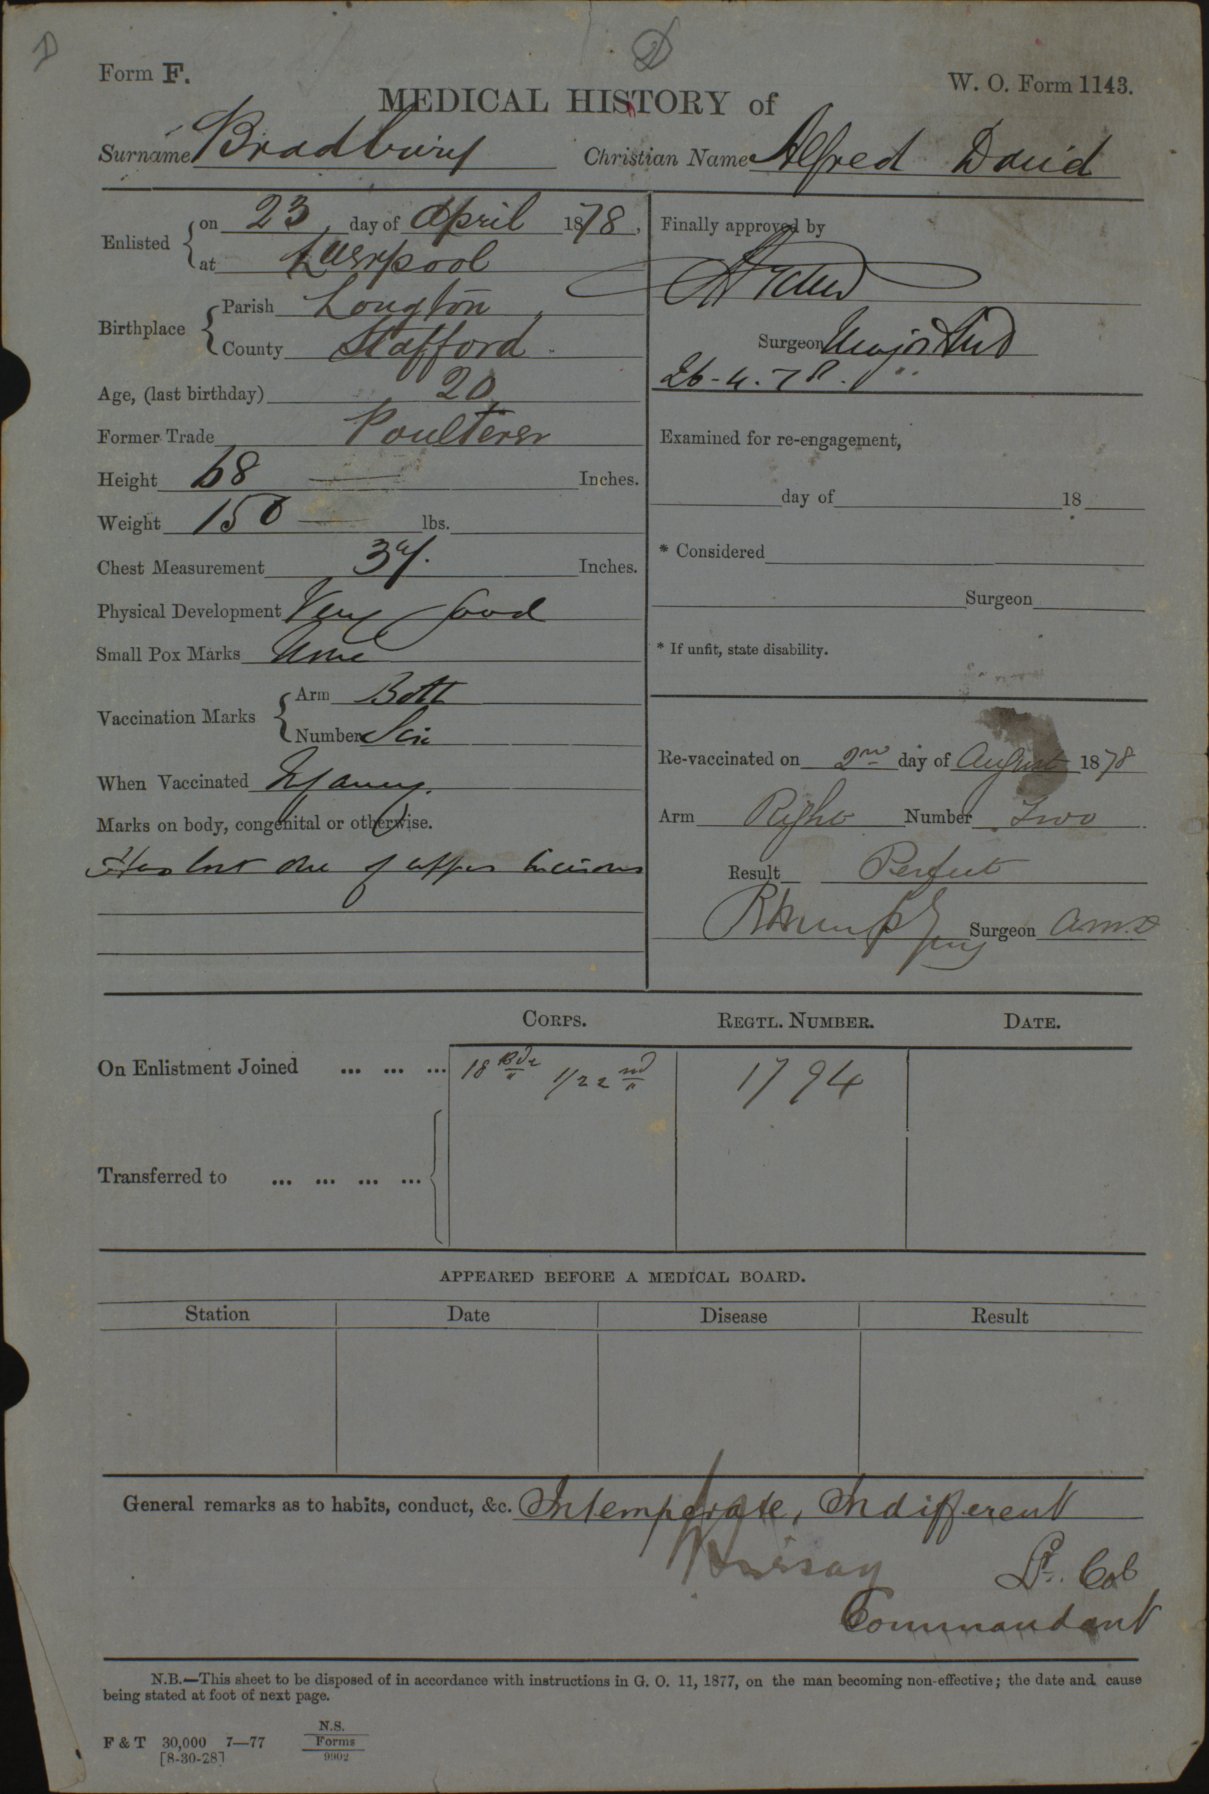 Form F.
W. O. Form 1143.
MEDICAL HISTORY of
Surname Bradbury Christian Name Alfred David
Enlisted on 23 day of April 1878,
at Liverpool
Birthplace Parish Longton
County Stafford
Age, (last birthday) 20
Former Trade Poulterer
Height 68 Inches.
Weight 150 lbs.
Chest Measurement 34. Inches.
Physical Development Very Good
Small Pox Marks None
Vaccination Marks Arm Both
Number Six
When Vaccinated Infancy.
Marks on body, congenital or otherwise.
Has lost one of upper incisors
Finally approved by
Surgeon Major
26-4-78.
Examined for re-engagement,
day of 18
* Considered
Surgeon
* If unfit, state disability.
Re-vaccinated on 2nd day of August 1878
Arm Right Number Two
Result Perfect
Surgeon A.M.D
CORPS. REGTL. NUMBER. DATE.
On Enlistment Joined ... ... ... 18 Bde 1/22nd 1794
Transferred to ... ... ... ...
APPEARED BEFORE A MEDICAL BOARD.
Station Date Disease Result
General remarks as to habits, conduct, &c. Intemperate, Indifferent
Lt. Col
Commandant
N.B.—This sheet to be disposed of in accordance with instructions in G. O. 11, 1877, on the man becoming non-effective; the date and cause
being stated at foot of next page.
F & T 30,000 7—77
[8-30-28]
N.S.
Forms
9902